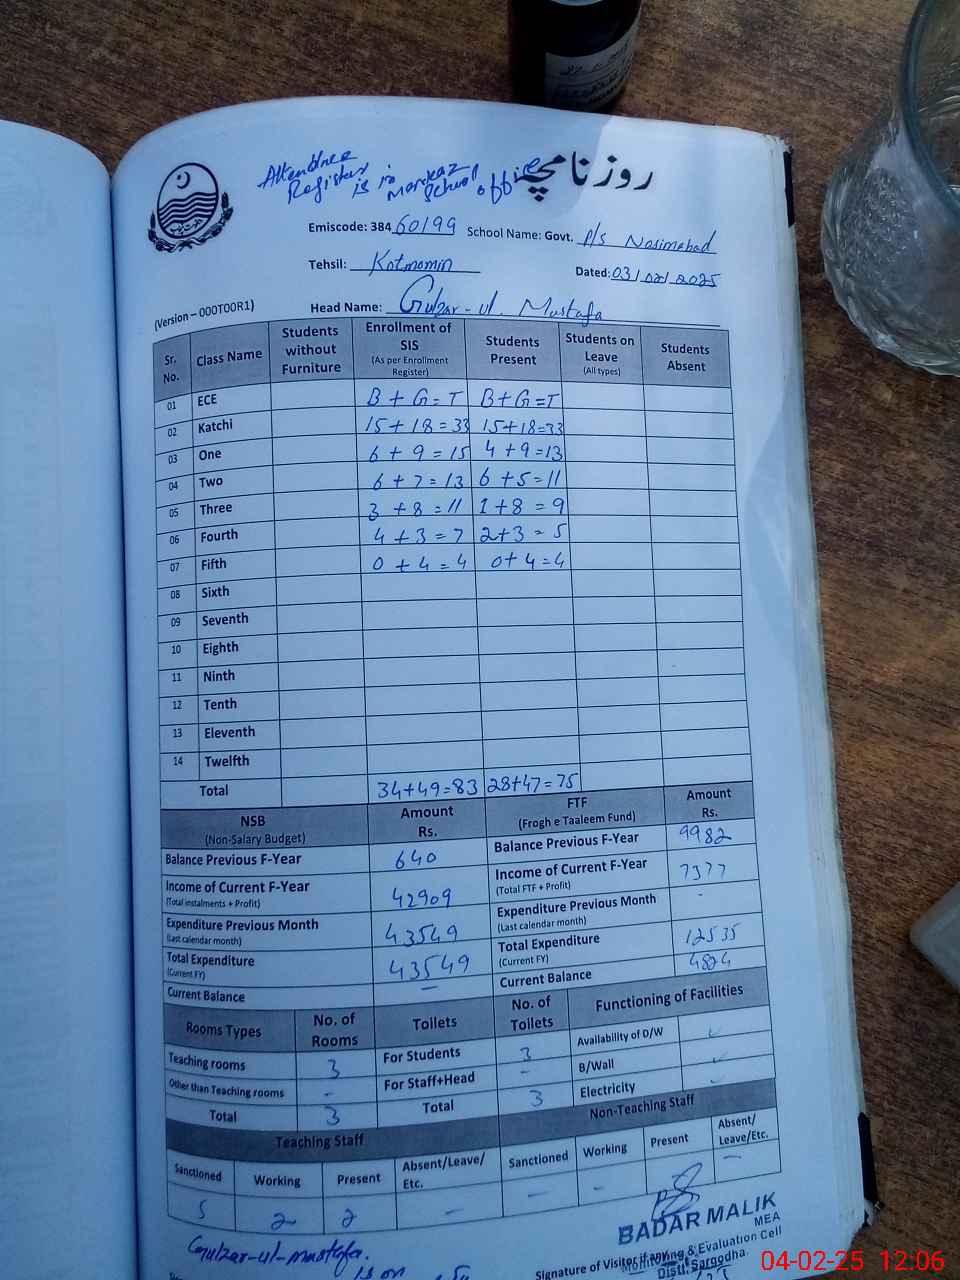 Attendnce
Register
is in
markaz
School office
روزنامچہ
Emiscode: 384 60199 School Name: Govt. P/S Nasimabad
Tehsil: Kotmomin Dated: 03/02/2025
(Version – 000T00R1) Head Name: Gulzar-ul-Mustafa
Sr. No. Class Name Students without Furniture Enrollment of SIS (As per Enrollment Register) Students Present Students on Leave (All types) Students Absent
01 ECE B + G = T B+G=T
02 Katchi 15+18=33 15+18=33
03 One 6 + 9 = 15 4 +9=13
04 Two 6 + 7 = 13 6 +5=11
05 Three 3 +8 = 11 1+8 = 9
06 Fourth 4 +3 = 7 2+3 = 5
07 Fifth 0 + 4 = 4 0+4=4
08 Sixth
09 Seventh
10 Eighth
11 Ninth
12 Tenth
13 Eleventh
14 Twelfth
Total 34+49=83 28+47=75
NSB (Non-Salary Budget) Amount Rs. FTF (Frogh e Taaleem Fund) Amount Rs.
Balance Previous F-Year 640 Balance Previous F-Year 9982
Income of Current F-Year (Total instalments + Profit) 42909 Income of Current F-Year (Total FTF + Profit) 7377
Expenditure Previous Month (Last calendar month) 43549 Expenditure Previous Month (Last calendar month) -
Total Expenditure (Current FY) 43549 Total Expenditure (Current FY) 12535
Current Balance – Current Balance 4824
Rooms Types No. of Rooms Toilets No. of Toilets Functioning of Facilities
Teaching rooms 3 For Students 3 Availability of D/W ✓
Other than Teaching rooms - For Staff+Head - B/Wall ✓
Total 3 Total 3 Electricity ✓
Teaching Staff Non-Teaching Staff
Sanctioned Working Present Absent/Leave/Etc. Sanctioned Working Present Absent/Leave/Etc.
5 2 2 – – – –
BADAR MALIK
MEA
Monitoring & Evaluation Cell
Distt. Sargodha.
Signature of Visitor if any
Gulzar-ul-mustafa.
is on
04-02-25 12:06